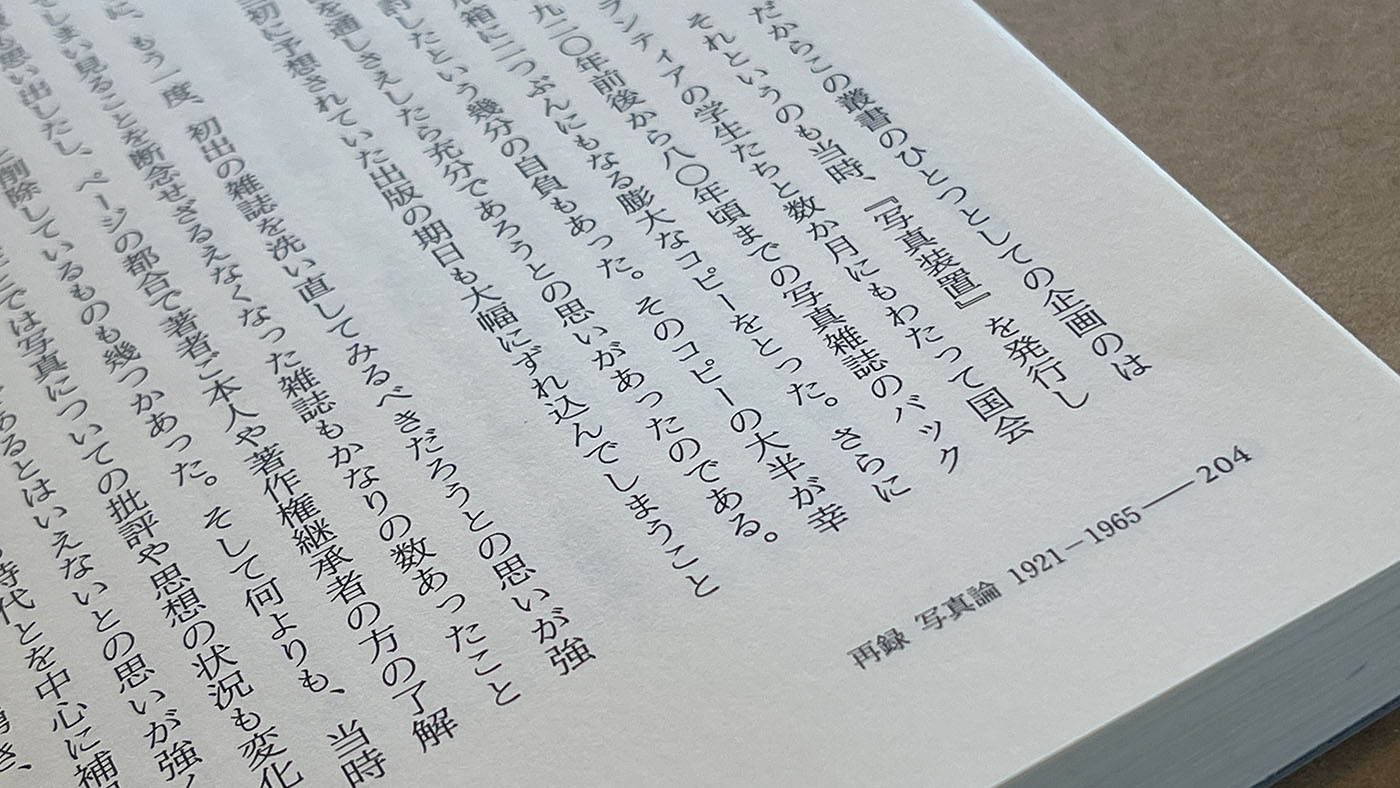 だからこの叢書のひとつとしての企画のは
それというのも当時、『写真装置』を発行し
ランティアの学生たちと数か月にもわたって国会
九二〇年前後から八〇年頃までの写真雑誌のバック
箱に二つぶんにもなる膨大なコピーをとった。さらに
討したという幾分の自負もあった。そのコピーの大半が幸
を通しさえしたら充分であろうとの思いがあったのである。
初に予想されていた出版の期日も大幅にずれ込んでしまうこと
に、もう一度、初出の雑誌を洗い直してみるべきだろうとの思いが強
てしまい見ることを断念せざるえなくなった雑誌もかなりの数あったこと
も思い出したし、ページの都合で著者ご本人や著作権継承者の方の了解
削除しているものも幾つかあった。そして何よりも、当時
では写真についての批評や思想の状況も変化
あるとはいえないとの思いが強
時代とを中心に補
再録 写真論 1921−1965——204